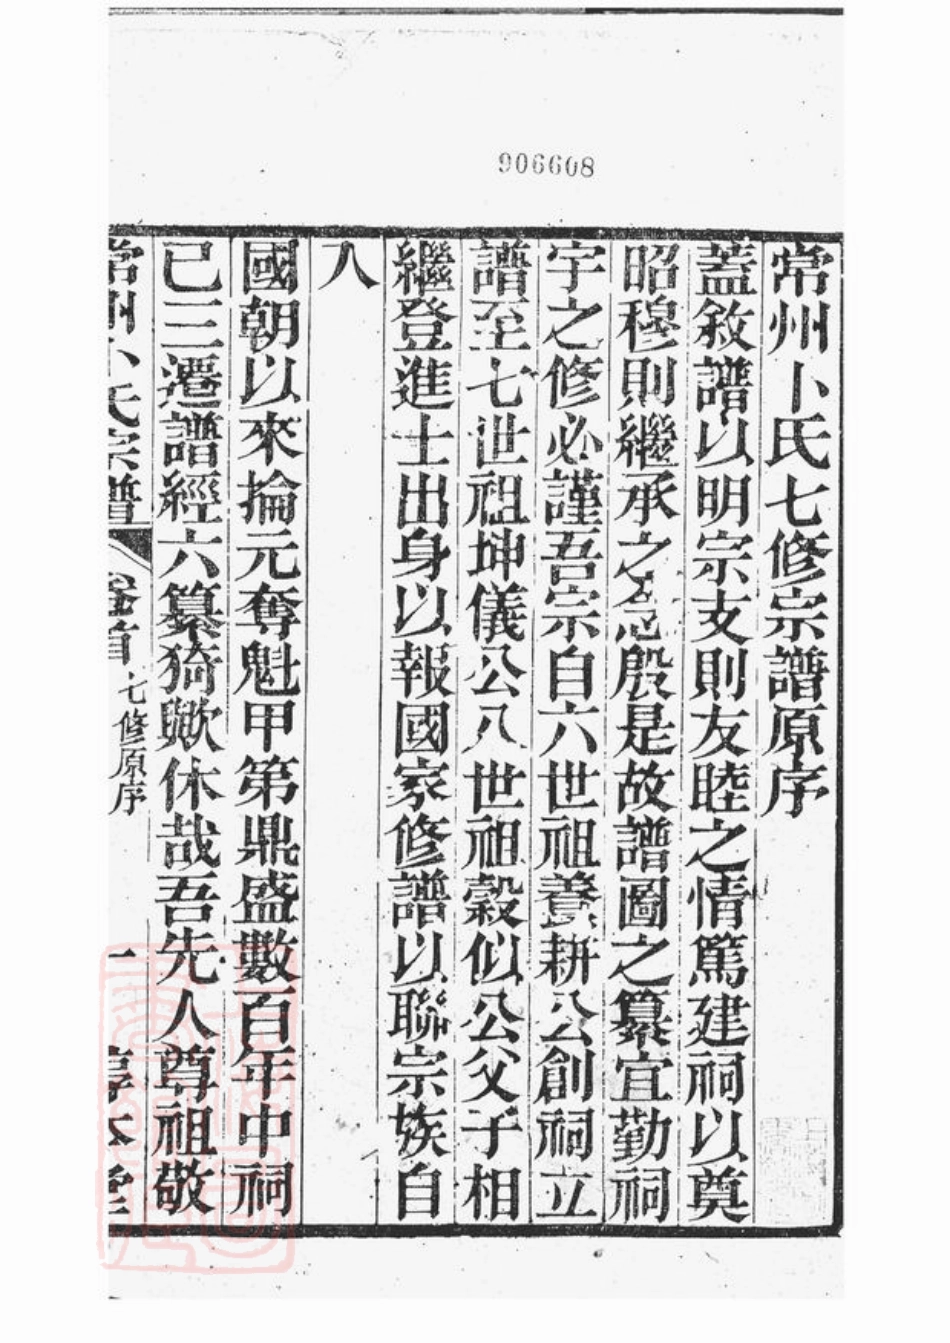 906608
常州卜氏七修宗譜原序
蓋敘譜以明宗支則友睦之情篤建祠以奠
昭穆則繼承之念殷是故譜圖之纂宜勤祠
宇之修必謹吾宗自六世祖養耕公創祠立
譜至七世祖坤儀公八世祖穀似公父子相
繼登進士出身以報國家修譜以聯宗族自
入
國朝以來掄元奪魁甲第鼎盛數百年中祠
已三遷譜經六纂猗歟休哉吾先人尊祖敬
常州卜氏宗譜 卷首 七修原序 一 享本堂